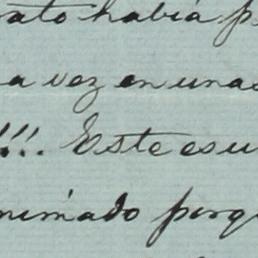 rato había p
a vez en unas
!!!. Este es u
nimado porq